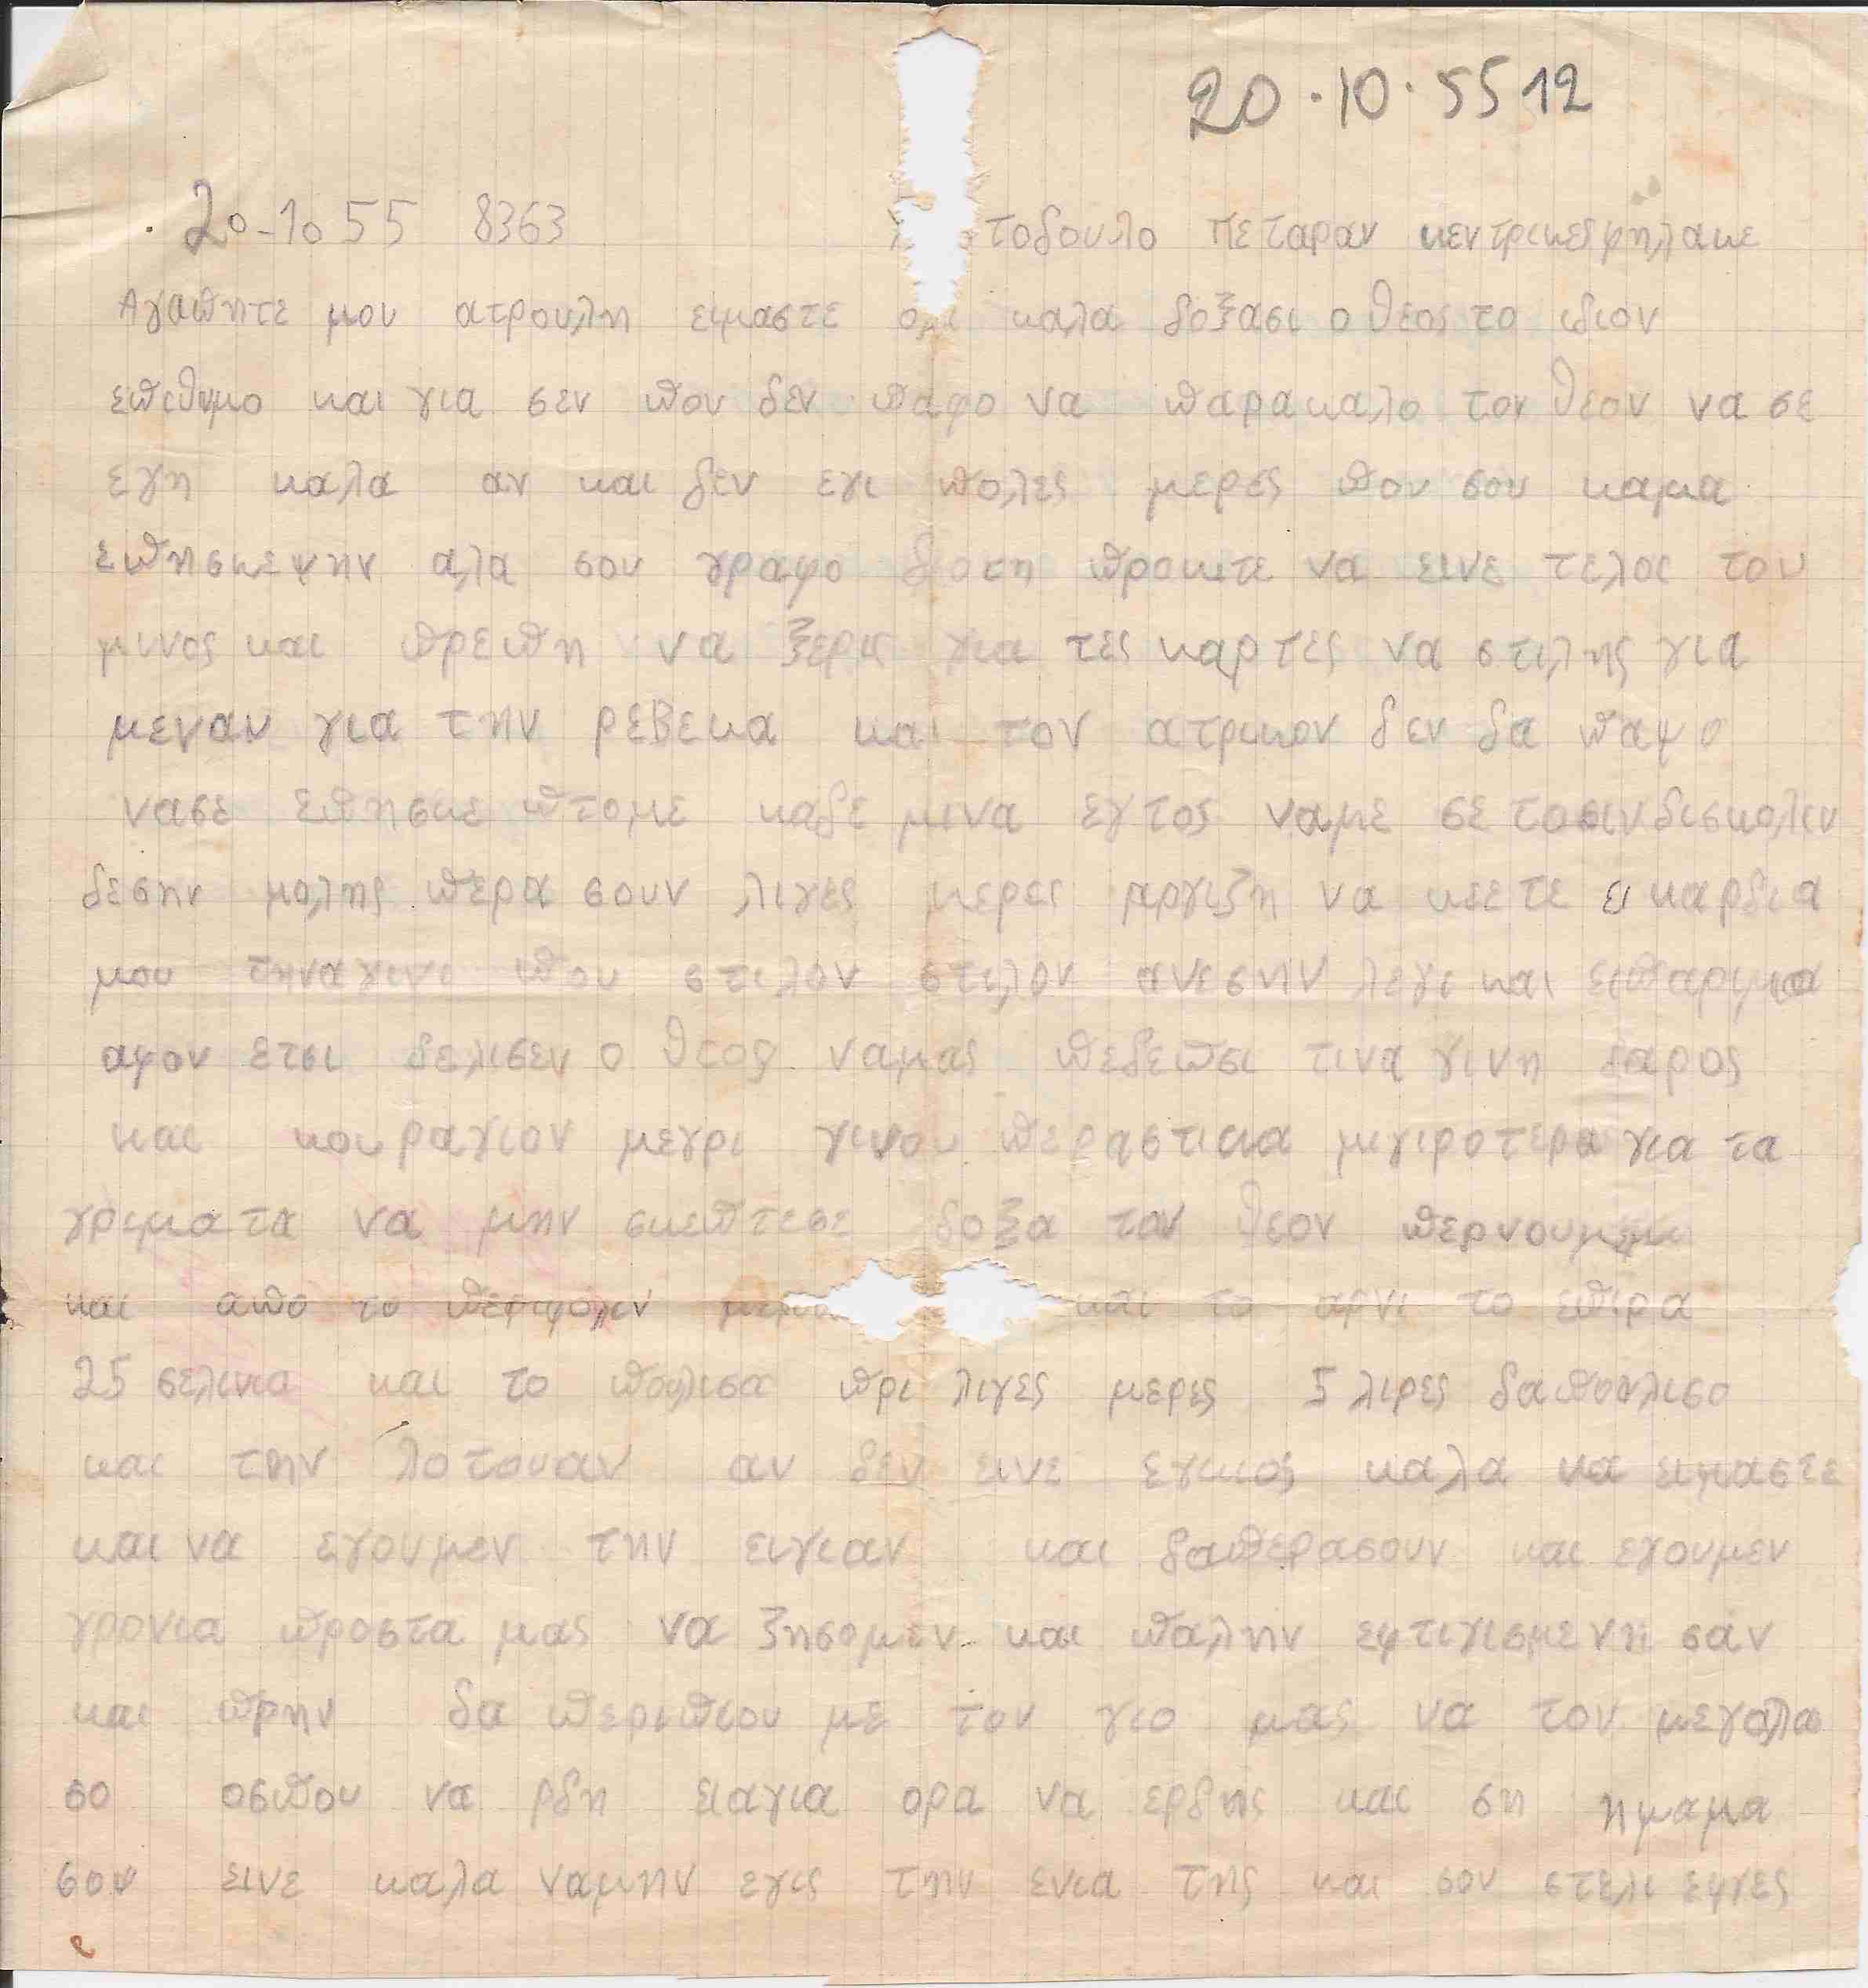 20.10.55 12
20-10 55 8363 τοδουλο πεταραν κεντρικεσφηλακε
Αγαπητε μου ατρουλη ειμαστε ολι καλα δοξασι ο θεος το ιδιον
επιθυμο και για σεν που δεν παφο να παρακαλο τον θεον να σε
εγη καλα αν και δεν εγι πολες μερες που σου καμα
επησκεψην αλα σου γραφο διοτη προκιτε να εινε τελος του
μινος και πρεπη να ξερις για τες καρτες να στιλης για
μεναν για την ρεβεκα και τον ατρικον δεν δα παψο
νασε επησκε πτομε καδε μινα εγτος ναμε σε τοσινδισκολιν
δεσην μολης περα σουν λιγες μερες αργιζη να κεετε ει καρδια
μου τηναγινι που στιλον στιλον ανεσην λεγι και
αφου ετσι δελισεν ο θεος ναμας πεδεπσι τινα γινη δαρος
και κουραγιον μεγρι γινου περαστικα μιγιροτερα για τα
γριματα να μην σκεπτεσε δοξα τον θεον
και απο το περιφολιν και το αρνι το επιρα
25 σελινια και το πουλισα πρι λιγες μερες 5 λιρες δαπουλισο
και την λοτουαν αν δεν εινε εγκιος καλα να ειμαστε
και να εγουμεν την ειγιαν και δαπερασουν και εγουμεν
γρονια προστα μας να ζησομεν και παλην εφτιγισμενη σαν
και πρην δα περιπιου με τον γιο μας να τον μεγαλο
σο οσπου να ρδη ειαγια ορα να ερδης και ση ημαμα
σου εινε καλα ναμην εγις την ενια της και σου στελι εφγες